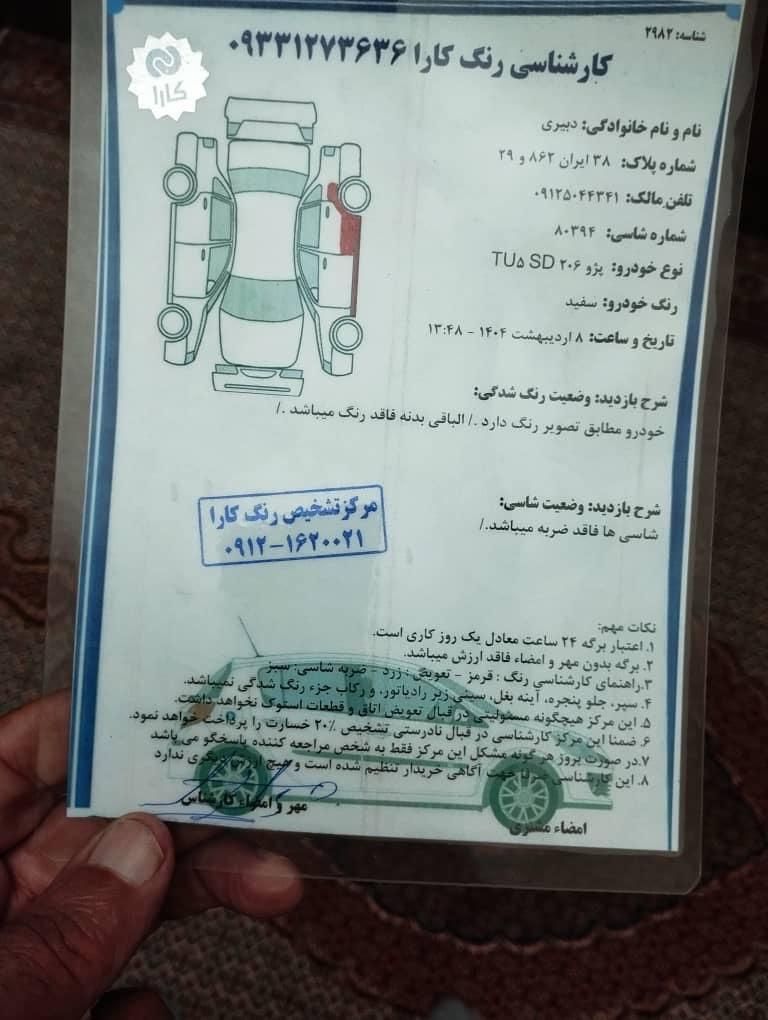 شناسه: ۲۹۸۲
کارشناسی رنگ کارا ۰۹۳۳۱۲۷۳۶۳۶
کارا
نام و نام خانوادگی: دبیری
شماره پلاک: ۳۸ ایران ۸۶۲ و ۲۹
تلفن مالک: ۰۹۱۲۵۰۴۴۳۴۱
شماره شاسی: ۸۰۳۹۴
نوع خودرو: پژو ۲۰۶ TU۵ SD
رنگ خودرو: سفید
تاریخ و ساعت: ۸ اردیبهشت ۱۴۰۴ - ۱۳:۴۸
شرح بازدید: وضعیت رنگ شدگی:
خودرو مطابق تصویر رنگ دارد ./ الباقی بدنه فاقد رنگ میباشد ./
شرح بازدید: وضعیت شاسی:
شاسی ها فاقد ضربه میباشد./
مرکز تشخیص رنگ کارا
۰۹۱۲-۱۶۲۰۰۲۱
نکات مهم:
۱. اعتبار برگه ۲۴ ساعت معادل یک روز کاری است.
۲. برگه بدون مهر و امضاء فاقد ارزش میباشد.
۳.راهنمای کارشناسی رنگ : قرمز - تعویض : زرد - ضربه شاسی: سبز
۴. سپر، جلو پنجره، آینه بغل، سینی زیر رادیاتور، و رکاب جزء رنگ شدگی نمیباشد.
۵. این مرکز هیچگونه مسئولیتی در قبال تعویض اتاق و قطعات استوک نخواهد داشت.
۶. ضمنا این مرکز کارشناسی در قبال نادرستی تشخیص ۲۰٪ خسارت را پرداخت خواهد نمود.
۷.در صورت بروز هر گونه مشکل این مرکز فقط به شخص مراجعه کننده پاسخگو می باشد
۸. این کارشناسی صرفا جهت آگاهی خریدار تنظیم شده است و هیچ ارزش دیگری ندارد
مهر و امضاء کارشناس
امضاء مشتری